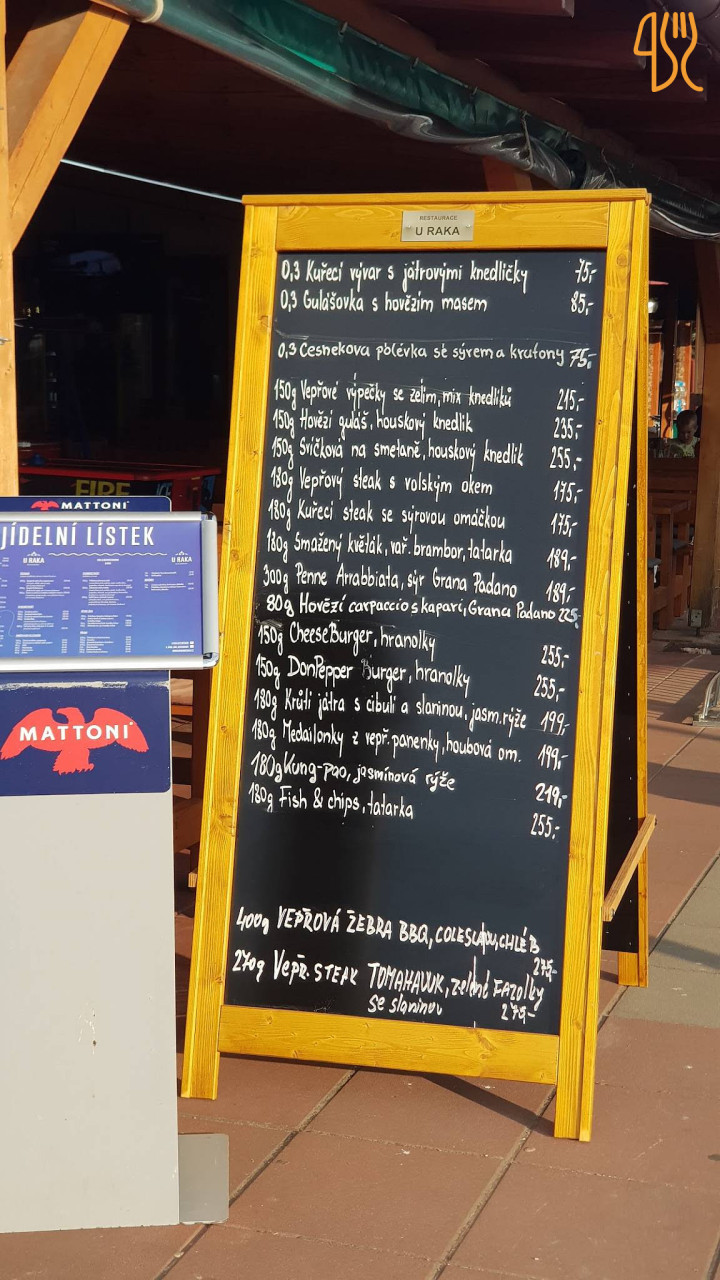 RESTAURACE
U RAKA
0,3 Kuřecí vývar s játrovými knedlíčky 75,-
0,3 Gulášovka s hovězím masem 85,-
0,3 Česnekova polévka se sýrem a krutony 75,-
150g Vepřové výpečky se zelím, mix knedlíků 215,-
150g Hovězí guláš, houskový knedlík 235,-
150g Svíčková na smetaně, houskový knedlík 255,-
180g Vepřový steak s volským okem 175,-
180g Kuřecí steak se sýrovou omáčkou 175,-
180g Smažený květák, vař. brambor, tatarka 189,-
300g Penne Arrabbiata, sýr Grana Padano 189,-
80g Hovězí carpaccio s kapari, Grana Padano 225,-
150g CheeseBurger, hranolky 255,-
150g DonPepper Burger, hranolky 255,-
180g Krůtí játra s cibulí a slaninou, jasm. rýže 199,-
180g Medailonky z vepř. panenky, houbová om. 199,-
180g Kung-pao, jasmínová rýže 219,-
180g Fish & chips, tatarka 255,-
400g VEPŘOVÁ ŽEBRA BBQ, COLESLAW, CHLÉB 275,-
270g VEPŘ. STEAK TOMAHAWK, zelené FAZOLKY
se slaninou 275,-
FIRE
MATTONI
JÍDELNÍ LÍSTEK
U RAKA
U RAKA
MATTONI